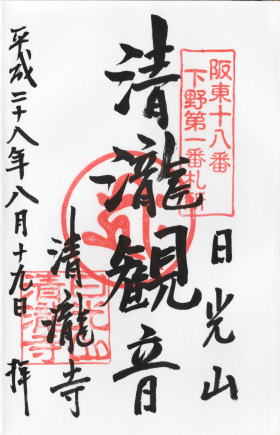 阪東十八番
下野第一番札所
日光山
清瀧観音
清瀧寺
平成二十八年八月十九日 拝
日光山
清滝寺